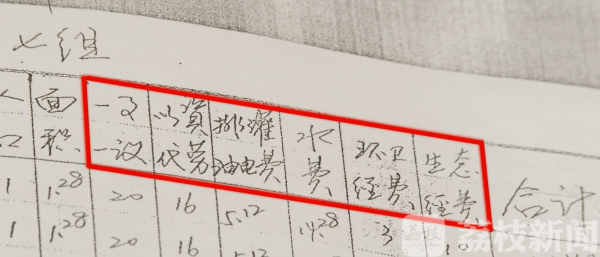 七组
人 面 一事 以資 排灌 水 环卫 生态
口 积 一议 代劳 油电费 费 经费 经费 合计
1 1.28 20 16 5.12 14.28 3
1 1.28 20 16 5.12
荔枝新闻